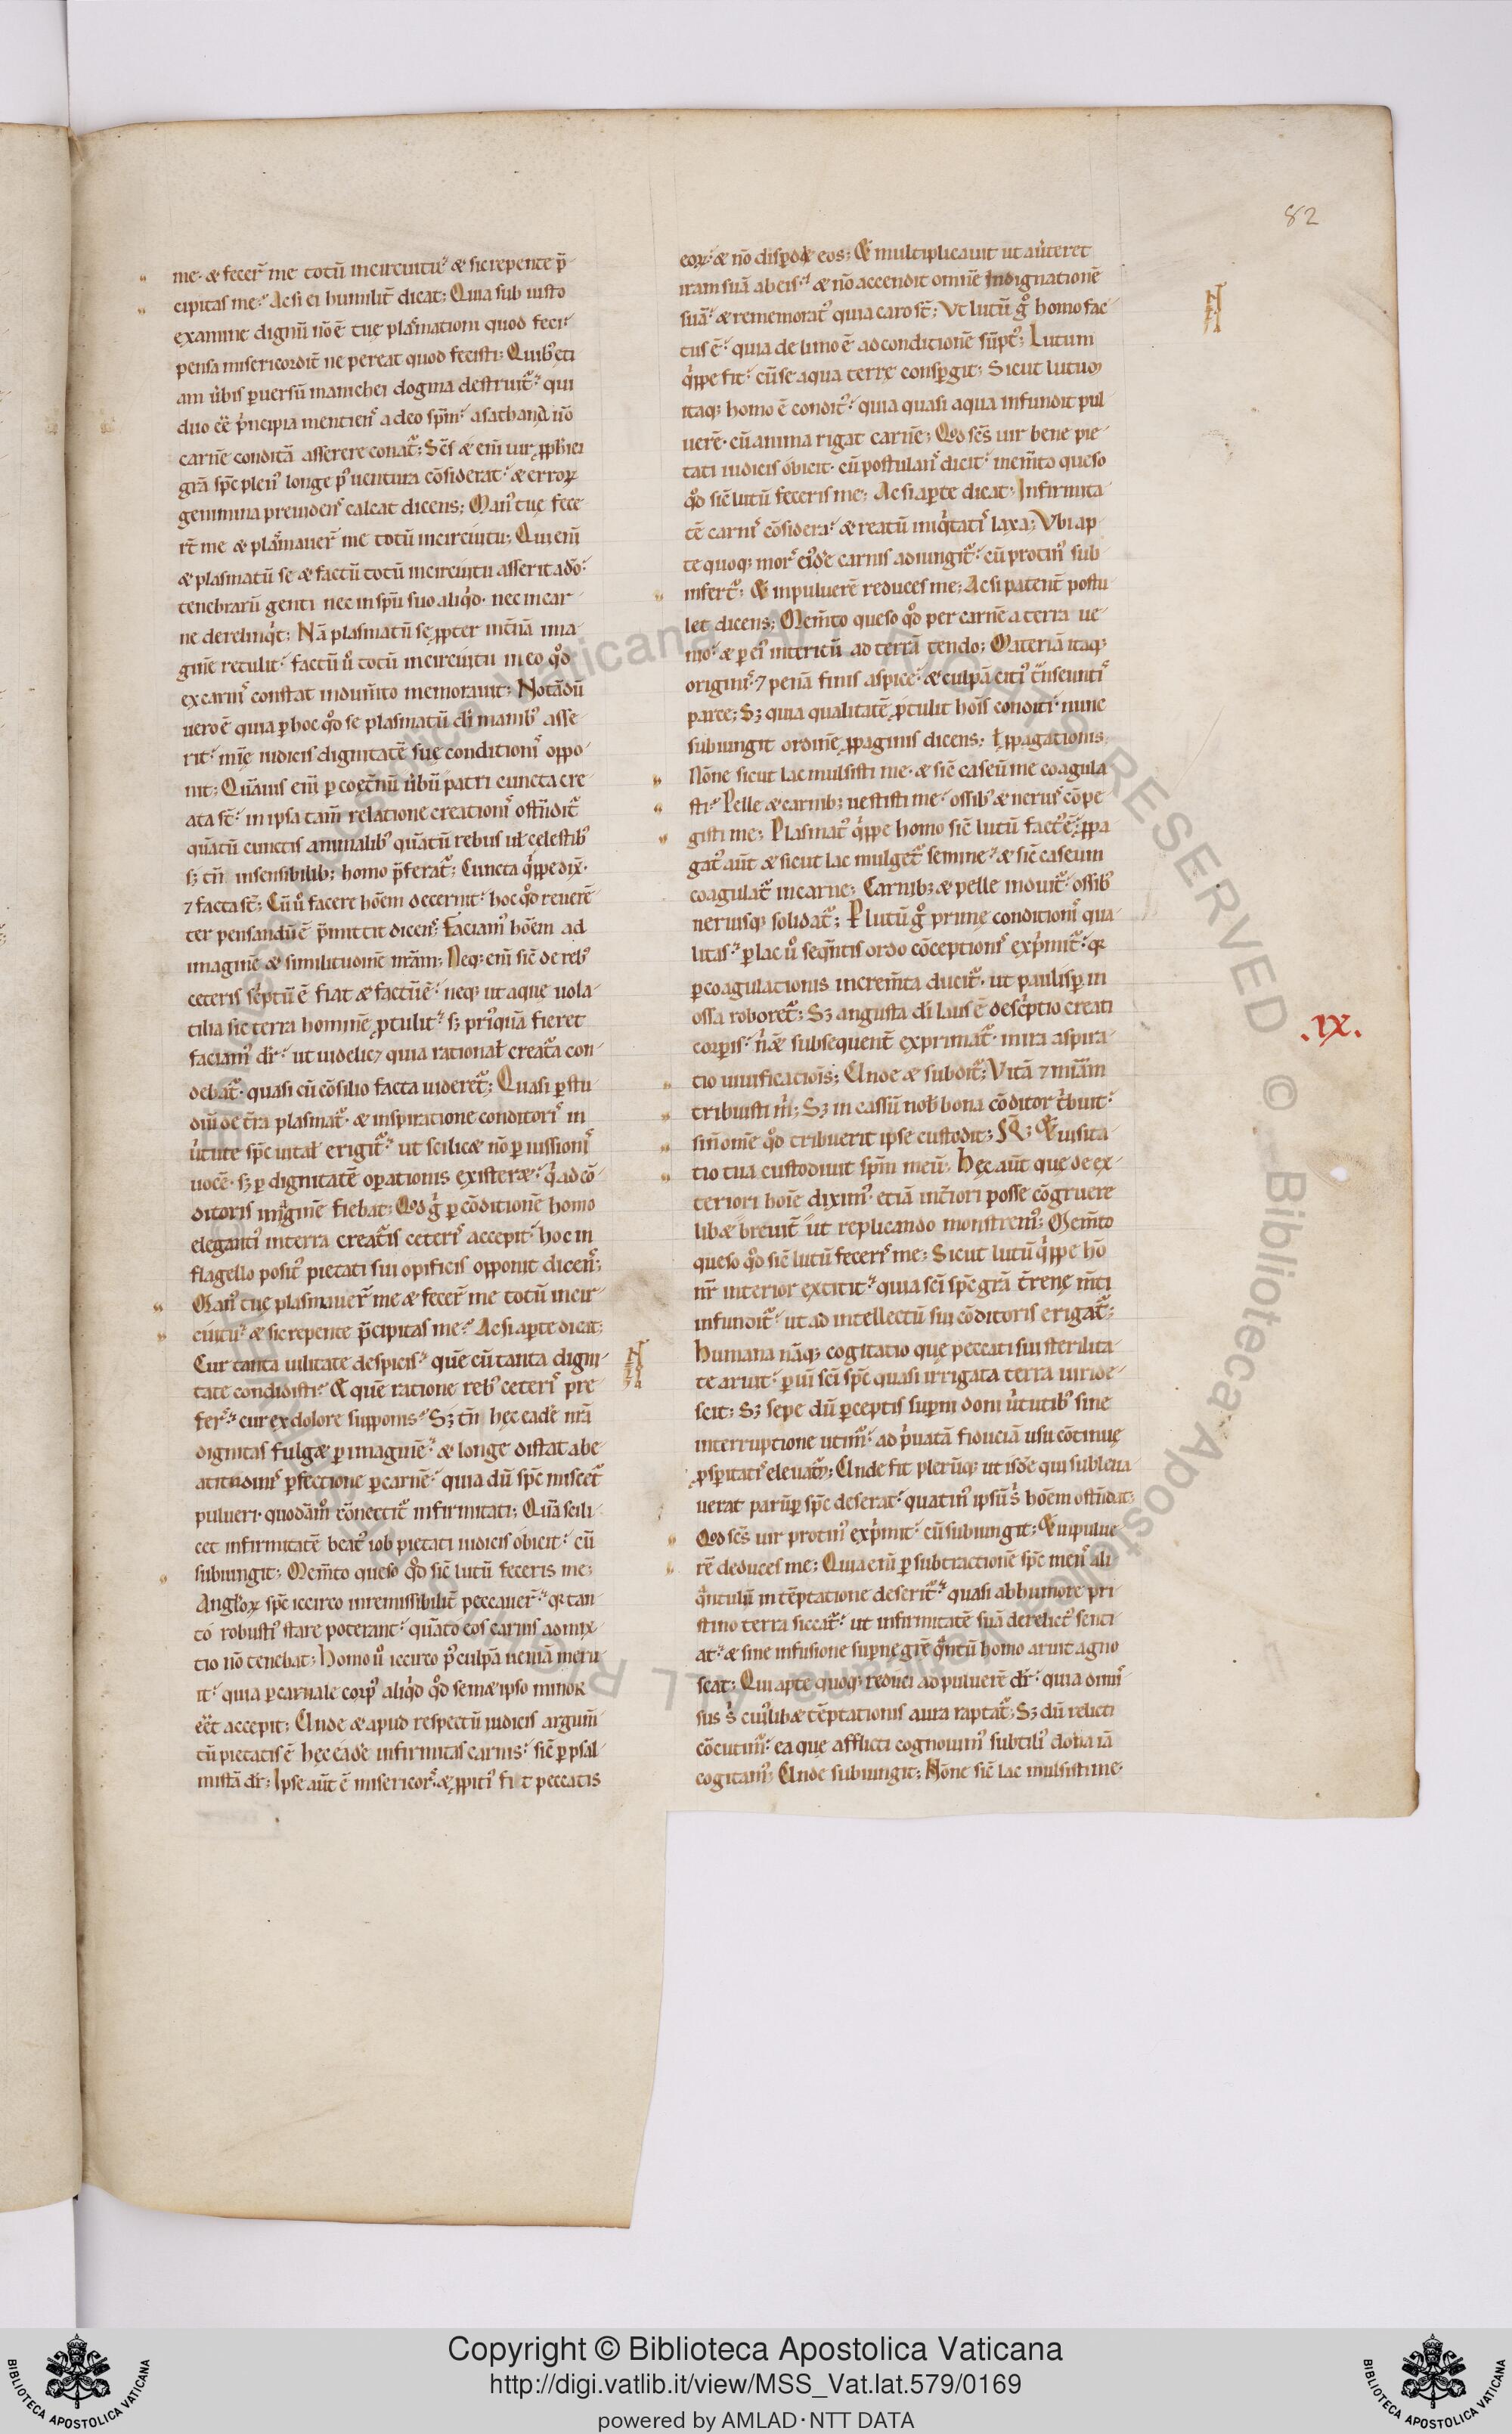 82
me. & fecer̄ me totū incircuitu? & sic repente p̄
cipitas me? Ac si ei humilit̄ dicat; Quia sub iusto
examine dignū n̄ ē tue plasmationi quod feci?
pensa misericordit̄ ne pereat quod fecisti; Quib; eti
am ūbis puersū manichei dogma destruit̄? qui
duo eē p̄ncipia mentiens a deo spm̄? a sathana ū̄o
carnē conditā asserere conat̄; Sc̄s & eni uir pphici
grā spc̄ plen' longe p' uentura cōsiderat? & erroꝝ
germina preuidens calcat dicens; Man' tue fece
rt̄ me & plasmauer̄ me totū incircuitu; Qui eni
& plasmatū se & factū totū incircuitu asserit a dō?
tenebrarū genti nec in spū suo aliq'd. nec in car
ne derelinq't; Nā plasmatū se ppter int̄nā ima
ginē retulit? factū ū totū incircuitu in eo qd
ex carnis constat indum̄to memorauit; Notādū
uero ē quia p hoc qd se plasmatū di manib' asse
rit? mīe iudicis dignitatē sue conditionis oppo
nit; Quāuis eni p coet̄nū ūbū patri cuncta cre
ata st̄? in ipsa tam̄ relatione creationis ostn̄dit̄
quātū cunctis animalib' quātū rebus uł celestib'
sꝫ tn̄ insensibilib; homo p̄ferat̄; Cuncta q'ppe dix̄.
⁊ facta st̄; Cū ū facere hōem decernit? hoc qd reuerē
ter pensandū ē p̄mittit dicens; faciam' hōem ad
imaginē & similitudinē nrām; Neq; eni sic̄ de reb'
ceteris sc'ptū ē fiat & factū ē? neq; ut aque uola
tilia sic terra hominē ptulit? sꝫ pri'quā fieret
faciam' dr̄? ut uidelicꝫ quia rational̄ creat̄a con
debat̄. quasi cū cōsilio facta uideret̄; Quasi p stu
diū de t̄ra plasmat̄. & inspiratione conditoris in
ūtute spc̄ uital̄ erigit̄? ut scilic& nō p iussionis
uocē. sꝫ p dignitatē opationis exister&? q' ad cō
ditoris imaginē fiebat; Qd g̊ p cōditionē homo
eleganti' in terra creat̄is ceteris accepit? hoc in
flagello posit' pietati sui opificis opponit dicens;
Man' tue plasmauer̄ me & fecer̄ me totū incir
cuitu? & sic repente p̄cipitas me? Ac si apte dicat;
Cur tanta uilitate despicis? quē cū tanta digni
tate condidisti? & quē ratione reb' ceteris pre
fers? cur ex dolore supponis? Sꝫ tn̄ hec eadē nrā
dignitas fulg& p imaginē? & longe distat a be
atitudinis pfectione p carnē? quia dū spc̄ miscet̄
pulueri. quodāmō cōnectit̄ infirmitati; Quā scili
cet infirmitatē beat' iob pietati iudicis obicit? cū
subiungit; Mem̄to queso qd sic̄ lutū feceris me;
Angl̄oꝝ spc̄ iccirco inremissibilit̄ peccauer̄? q; tan
to robusti' stare poterant? quāto eos carnis admix
tio nō tenebat; Homo ū iccirco p' culpā ueniā meru
it? quia p carnale corp' aliq'd qd sem& ipso minor
eēt accepit; Unde & apud respectū iudicis argum̄
tū pietatis ē hec eadē infirmitas carnis? sic̄ p psal
mistā dr̄; Ipse aūt ē misericors & ppiti' fit peccatis
eoꝝ? & nō dispdet eos; Et multiplicauit ut aūteret
iram suā ab eis? & nō accendit omnē indignationē
suā? & rememorat' quia caro st̄; Vt lutū g̊ homo fac
tus ē? quia de limo ē ad conditionē sūpt'; Lutum
q'ppe fit? cū se aqua terre conspgit; Sicut lutum
itaq; homo ē condit'? quia quasi aqua infundit pul
uerē. cū anima rigat carnē; Qd sc̄s uir bene pie
tati iudicis obicit. cū postulans dicit? mem̄to queso
qd sic̄ lutū feceris me; Ac si apte dicat; Infirmita
tē carnis cōsidera? & reatū iniq'tatis laxa; Vbi ap
te quoq; mors ei'de carnis adiungit̄? cū protin' sub
infert̄; Et in puluerē reduces me; Ac si patent̄ postu
let dicens; Mem̄to queso qd per carnē a terra ue
nio? & p ei' interitū ad terrā tendo; Materiā itaq;
originis. ⁊ penā finis aspice? & culpā citi' t̄nseuntis
parce; Sꝫ quia qualitatē ptulit hoīs conditi. nunc
subiungit ordinē ppaginis dicens; ł ppagationis
Nōne sicut lac mulsisti me. & sic̄ caseū me coagula
sti? Pelle & carnib; uestisti me? ossib' & neruis cōpe
gisti me; Plasmat' q'ppe homo sic̄ lutū fact' ē? ppa
gat' aūt & sicut lac mulget̄ semine? & sic̄ caseum
coagulat̄ in carne; Carnib; & pelle induit̄? ossib'
neruisq; solidat̄; P lutū g̊ prime conditionis qua
litas? p lac ū seqn̄tis ordo cōceptionis exp'mit̄? q;
p coagulationis increm̄ta ducit̄. ut paulisp in
ossa roboret̄; Sꝫ angusta di laus ē desc'ptio creati
corpis? n& subsequent̄ exprimat̄. mira aspira
tio uiuificatiois; Unde & subdit̄; Vitā ⁊ miām
tribuisti m'; Sꝫ in cassū nob̄ bona cōditor t'buit?
si n̄ omē qd tribuerit ipse custodit; SR; Et uisita
tio tua custodiuit spm̄ meū; Hec aūt que de ex
teriori hoīe dixim' etiā int̄iori posse cōgruere
lib& breuit̄ ut replicando monstrem'; Mem̄to
queso qd sic̄ lutū feceris me; Sicut lutū q'ppe hō
nr̄ interior extitit? quia sci spc̄ grā t̄rene m̄ti
infundit̄? ut ad intellectū sui cōditoris erigat̄;
Humana nāq; cogitatio que peccati sui sterilita
te aruit? p uī sci spc̄ quasi irrigata terra uiride
scit; Sꝫ sepe dū pceptis supni doni ūtutib' sine
interruptione utim̄? ad p'uatā fiduciā usu cōtinue
pspitatis eleuam̄; Unde fit plerūq; ut isdē qui subleua
uerat parūp spc̄ deserat? quatin' ipsū s' hōem ostn̄dat;
Qd sc̄s uir protin' exp'mit? cū subiungit; Et in pulue
rē deduces me; Quia eni p subtractionē spc̄ mens ali
q'ntulū in tēptatione deserit̄? quasi ab humore pri
stino terra siccat̄? ut infirmitatē suā derelict' senti
at? & sine infusione supne gre q'ntū homo aruit agno
scat; Qui apte quoq; reduci ad puluerē dr̄? quia dimis
sus s' cui'lib& tēptationis aura raptat̄; Sꝫ dū relicti
cōcutim̄? ea que afflicti cognouim' subtili' dona iā
cogitam'; Unde subiungit; Nōne sic̄ lac mulsisti me.
.IX.
Copyright © Biblioteca Apostolica Vaticana
http://digi.vatlib.it/view/MSS_Vat.lat.579/0169
powered by AMLAD·NTT DATA
BIBLIOTECA APOSTOLICA VATICANA
BIBLIOTECA APOSTOLICA VATICANA